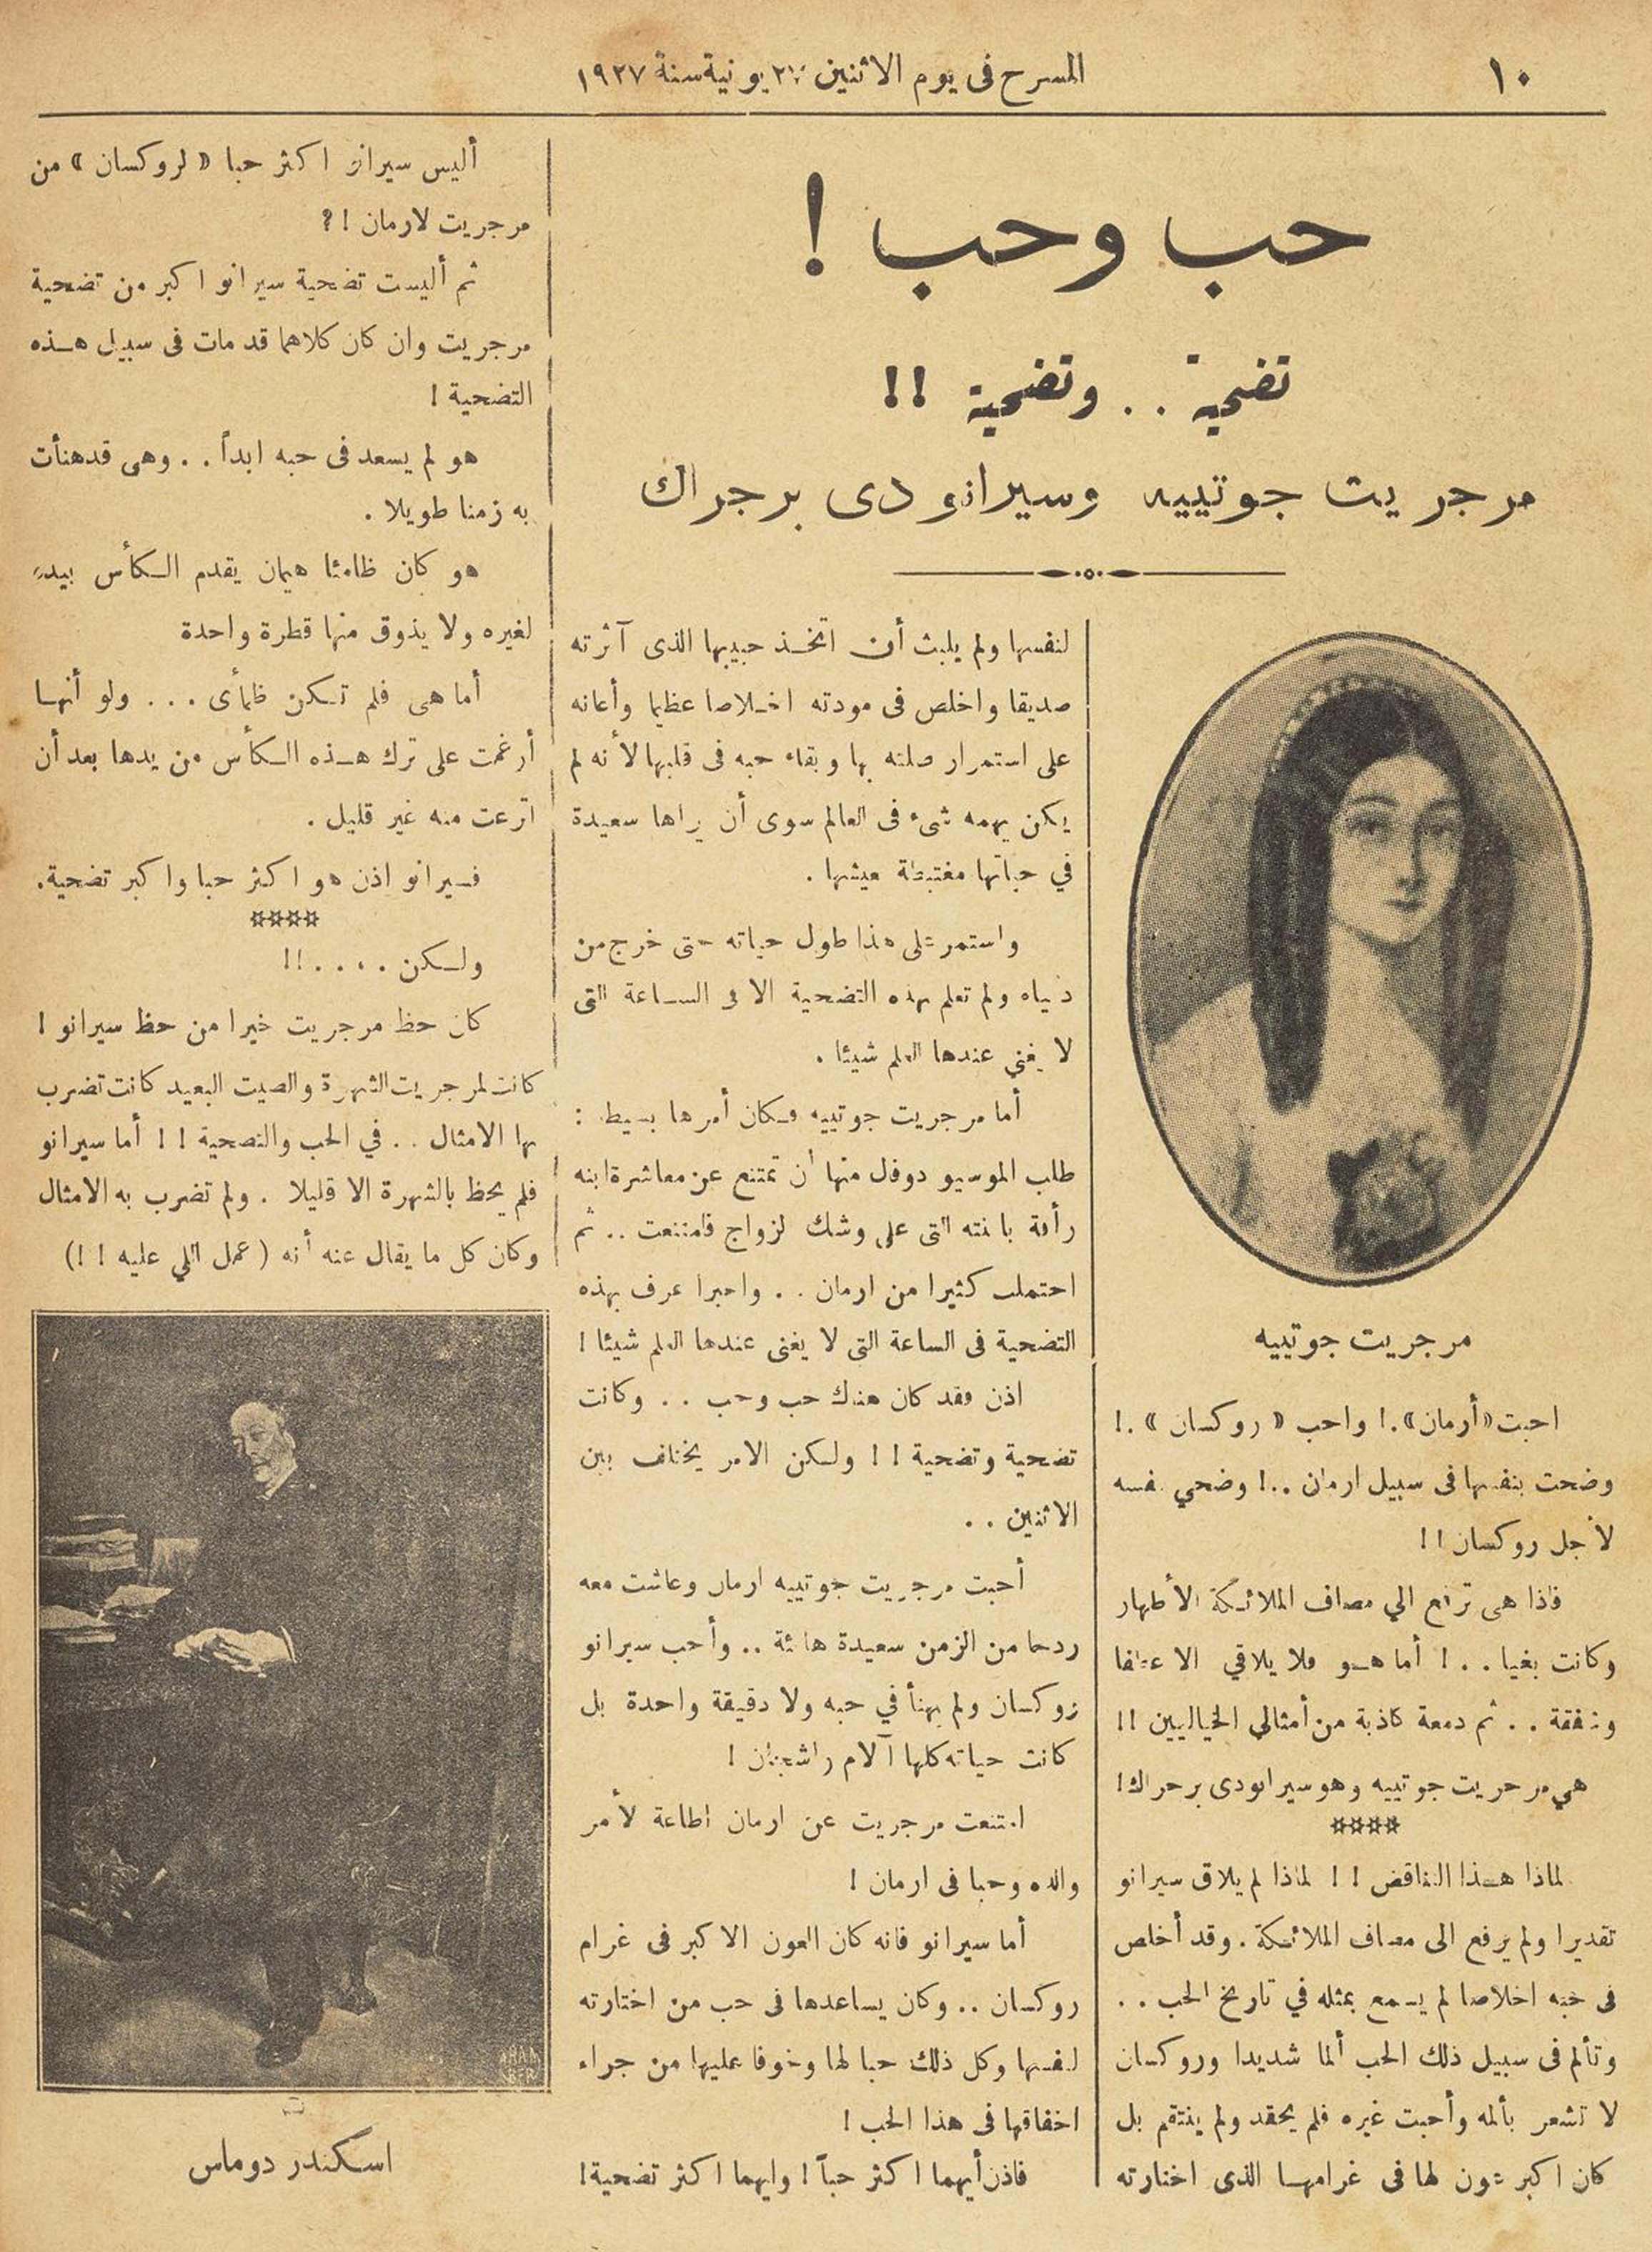 ١٠
المسرح فى يوم الاثنين ٢٧ يونية سنة ١٩٢٧
حب وحب !
تضحية . . وتضحية !!
مرجريت جوتييه وسيرانو دى برجراك
مرجريت جوتييه
احبت «أرمان».! واحب « روكسان » .!
وضحت بنفسها فى سبيل ارمان ..! وضحي نفسه
لأجل روكسان !!
فاذا هى ترفع الي مصاف الملائكة الأطهار
وكانت بغيا . . ! أما هو فلا يلاقي الا عطفا
وشفقة . . ثم دمعة كاذبة من أمثالي الخياليين !!
هي مرجريت جوتييه وهو سيرانودى برجراك!
****
لماذا هذا التناقض ! ! لماذا لم يلاق سيرانو
تقديرا ولم يرفع الى مصاف الملائكة . وقد أخلص
فى حبه اخلاصا لم يسمع بمثله في تاريخ الحب . .
وتألم فى سبيل ذلك الحب ألما شديدا وروكسان
لا تشعر بألمه وأحبت غيره فلم يحقد ولم ينتقم بل
كان اكبر عون لها فى غرامها الذى اختارته
لنفسها ولم يلبث أن اتخذ حبيبها الذى آثرته
صديقا واخلص فى مودته اخلاصا عظيما وأعانه
على استمرار صلته بها وبقاء حبه فى قلبها لأنه لم
يكن يهمه شىء فى العالم سوى أن يراها سعيدة
في حياتها مغتبطة بعيشها .
واستمر على هذا طول حياته حتى خرج من
دنياه ولم تعلم بهذه التضحية الا فى الساعة التى
لا يغني عندها العلم شيئا .
أما مرجريت جوتييه فكان أمرها بسيطا :
طلب الموسيو دوفال منها أن تمتنع عن معاشرة ابنه
رأفة بابنته التى على وشك الزواج فامتنعت .. ثم
احتملت كثيرا من ارمان . . واخيرا عرف بهذه
التضحية فى الساعة التى لا يغنى عندها العلم شيئا !
اذن فقد كان هناك حب وحب . . وكانت
تضحية وتضحية ! ! ولكن الامر يختلف بين
الاثنين . .
أحبت مرجريت جوتييه ارمان وعاشت معه
ردحا من الزمن سعيدة هانئة .. وأحب سيرانو
روكسان ولم يهنأ في حبه ولا دقيقة واحدة بل
كانت حياته كلها آلام واشجان !
امتنعت مرجريت عن ارمان اطاعة لأمر
والده وحبا فى ارمان !
أما سيرانو فانه كان العون الاكبر فى غرام
روكسان .. وكان يساعدها فى حب من اختارته
لنفسها وكل ذلك حبا لها وخوفا عليها من جراء
اخفاقها فى هذا الحب !
فاذن أيهما اكثر حباً ! وايهما اكثر تضحية!
أليس سيرانو اكثر حبا « لروكسان » من
مرجريت لارمان !؟
ثم أليست تضحية سيرانو اكبر من تضحية
مرجريت وان كان كلاهما قد مات فى سبيل هذه
التضحية !
هو لم يسعد فى حبه ابداً . . وهى قد هنأت
به زمنا طويلا .
هو كان ظامئا هيمان يقدم الكأس بيده
لغيره ولا يذوق منها قطرة واحدة
أما هى فلم تكن ظمأى . . . ولو أنها
أرغمت على ترك هذه الكأس من يدها بعد أن
اترعت منه غير قليل .
فسيرانو اذن هو اكثر حبا واكبر تضحية.
****
ولكن . . . . !!
كان حظ مرجريت خيرا من حظ سيرانو !
كانت لمرجريت الشهرة والصيت البعيد كانت تضرب
بها الامثال . . في الحب والتضحية ! ! أما سيرانو
فلم يحظ بالشهرة الا قليلا . ولم تضرب به الامثال
وكان كل ما يقال عنه أنه ( عمل اللي عليه ! !)
اسكندر دوماس